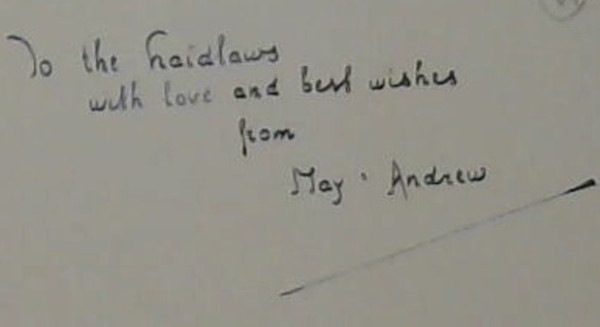 To the Laidlaws
with love and best wishes
from
May · Andrew